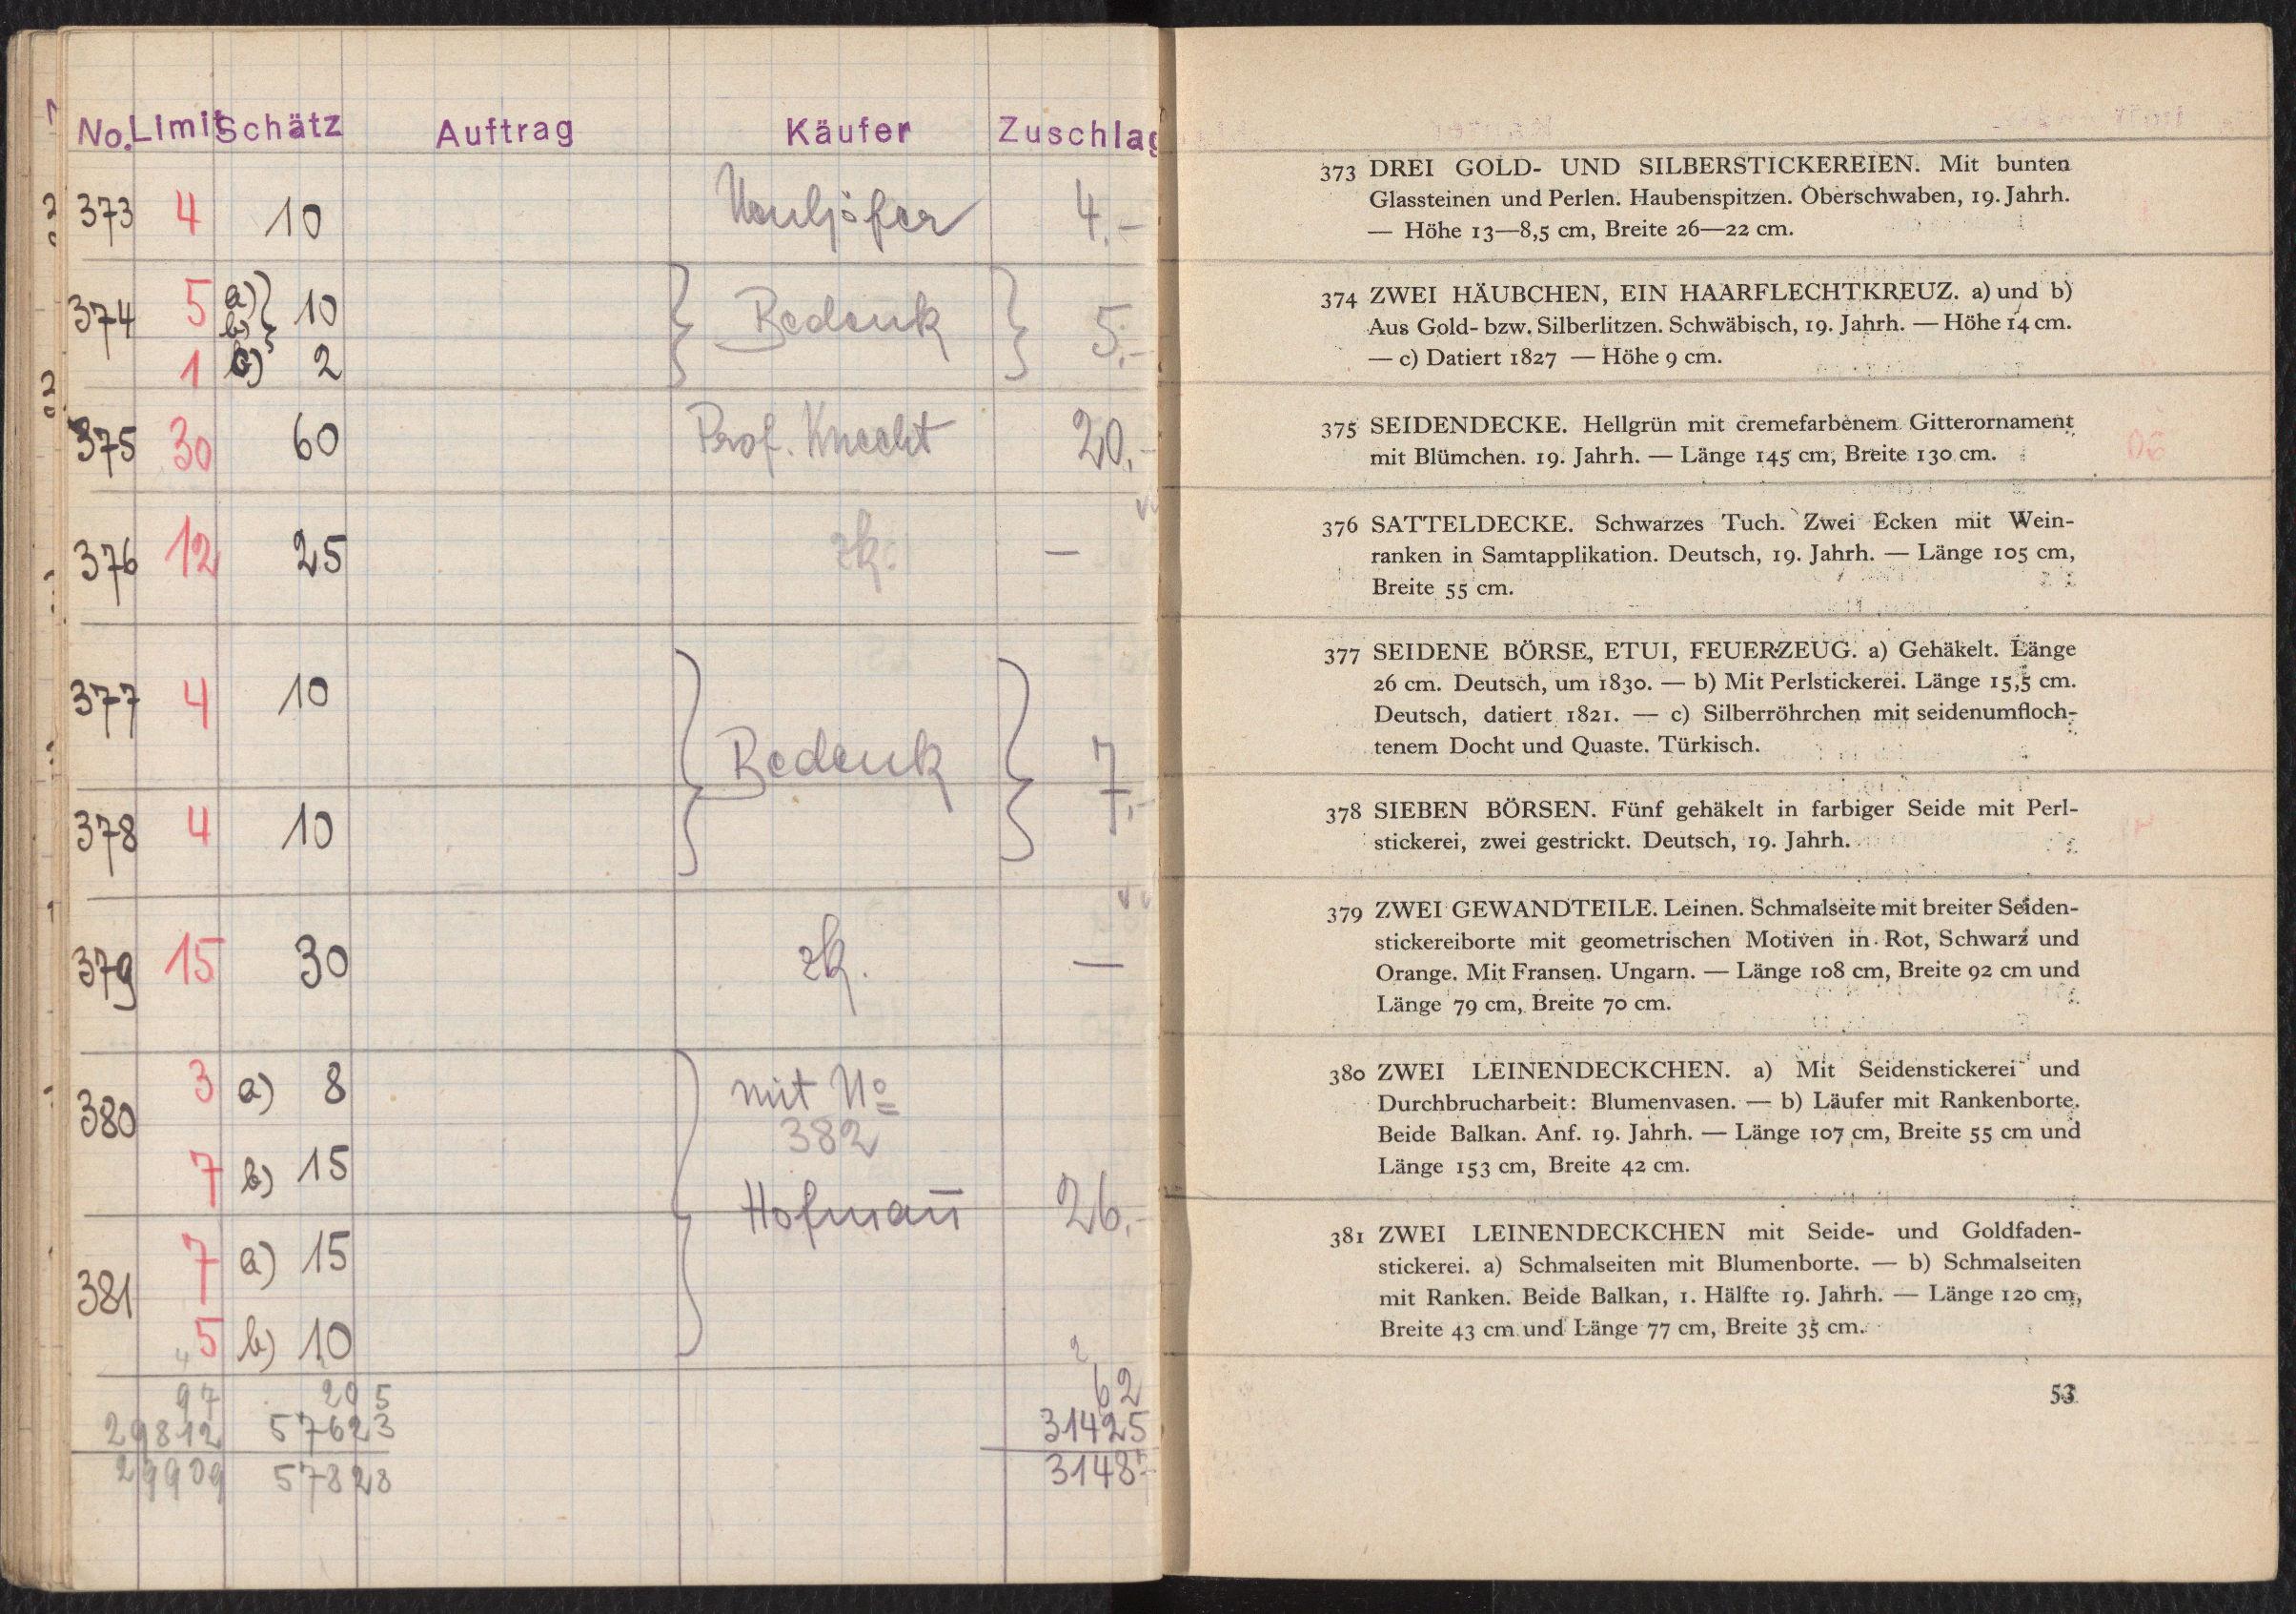 No. Limit Schätz Auftrag Käufer Zuschlag
373 4 10 Neuhöfer 4.-
374 5 a) b) } 10 Bedenk 5.-
1 c) 2
375 30 60 Prof. Knecht 20.-
376 12 25 zk. —
377 4 10
Bedenk 7.-
378 4 10
379 15 30 zk. —
380 3 a) 8 mit No
382
7 b) 15
Hofmann̄ 26.-
381 7 a) 15
5 b) 10
97 205 62
29812 57623 31425
29909 57828 3148
373 DREI GOLD- UND SILBERSTICKEREIEN. Mit bunten
Glassteinen und Perlen. Haubenspitzen. Oberschwaben, 19. Jahrh.
— Höhe 13—8,5 cm, Breite 26—22 cm.
374 ZWEI HÄUBCHEN, EIN HAARFLECHTKREUZ. a) und b)
Aus Gold- bzw. Silberlitzen. Schwäbisch, 19. Jahrh. — Höhe 14 cm.
— c) Datiert 1827 — Höhe 9 cm.
375 SEIDENDECKE. Hellgrün mit cremefarbenem Gitterornament
mit Blümchen. 19. Jahrh. — Länge 145 cm, Breite 130 cm.
376 SATTELDECKE. Schwarzes Tuch. Zwei Ecken mit Wein-
ranken in Samtapplikation. Deutsch, 19. Jahrh. — Länge 105 cm,
Breite 55 cm.
377 SEIDENE BÖRSE, ETUI, FEUERZEUG. a) Gehäkelt. Länge
26 cm. Deutsch, um 1830. — b) Mit Perlstickerei. Länge 15,5 cm.
Deutsch, datiert 1821. — c) Silberröhrchen mit seidenumfloch-
tenem Docht und Quaste. Türkisch.
378 SIEBEN BÖRSEN. Fünf gehäkelt in farbiger Seide mit Perl-
stickerei, zwei gestrickt. Deutsch, 19. Jahrh.
379 ZWEI GEWANDTEILE. Leinen. Schmalseite mit breiter Seiden-
stickereiborte mit geometrischen Motiven in Rot, Schwarz und
Orange. Mit Fransen. Ungarn. — Länge 108 cm, Breite 92 cm und
Länge 79 cm, Breite 70 cm.
380 ZWEI LEINENDECKCHEN. a) Mit Seidenstickerei und
Durchbrucharbeit: Blumenvasen. — b) Läufer mit Rankenborte.
Beide Balkan. Anf. 19. Jahrh. — Länge 107 cm, Breite 55 cm und
Länge 153 cm, Breite 42 cm.
381 ZWEI LEINENDECKCHEN mit Seide- und Goldfaden-
stickerei. a) Schmalseiten mit Blumenborte. — b) Schmalseiten
mit Ranken. Beide Balkan, 1. Hälfte 19. Jahrh. — Länge 120 cm,
Breite 43 cm und Länge 77 cm, Breite 35 cm.
53